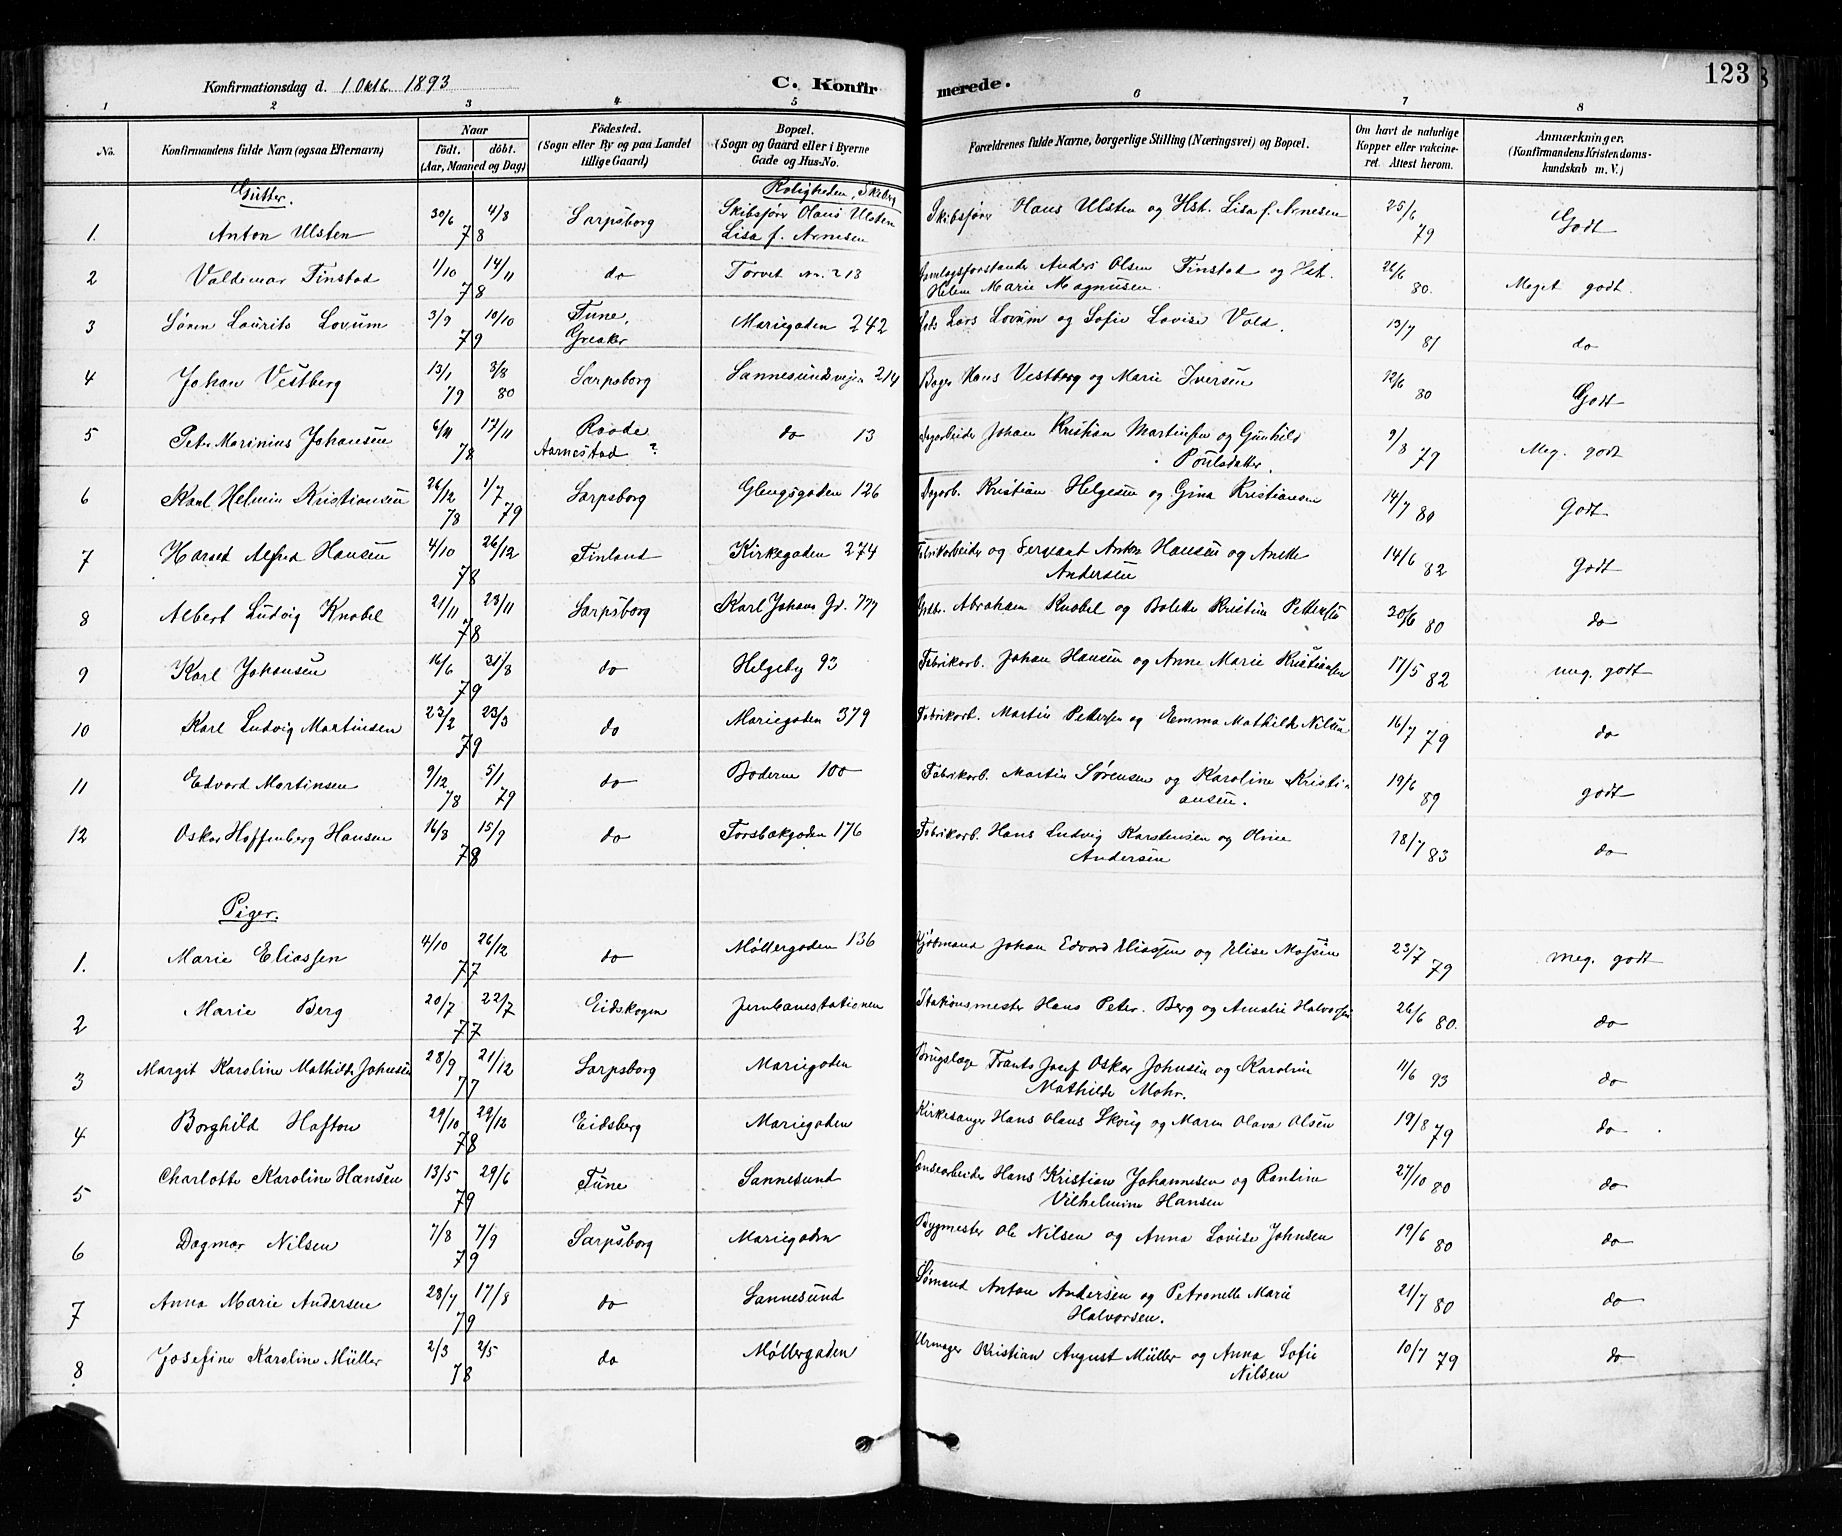 123
Konfirmationsdag d. 1 Oktb. 1893
C. Konfirmerede.
1 2 3 4 5 6 7 8
No. Konfirmandens fulde Navn (ogsaa Efternavn) Naar födt. döbt. (Aar, Maaned og Dag) Födested. (Sogn eller By og paa Landet tillige Gaard) Bopæl. (Sogn og Gaard eller i Byerne Gade og Hus-No. Forældrenes fulde Navne, borgerlige Stilling (Næringsvei) og Bopæl. Om havt de naturlige Kopper eller vakcineret. Attest herom. Anmærkninger, (Konfirmandens Kristendomskundskab m. V.)
Gutter. Roligheden, Skeberg
1. Anton Ulsten 30/6 4/8 78 Sarpsborg Skibsfører Olaus Ulsten Lisa f. Arnesen Skibsfører Olaus Ulsten og Hst. Lisa f. Arnesen 25/6 79 Godt
2 Valdemar Finstad 1/10 14/11 78 do Torvet No. 213 Anders Olsen Finstad og Hst. Helene Marie Magnusen. 26/6 80. Meget godt.
3 Sören Laurits Lovum 3/9 10/10 79 Tune, Greaker Mariegaden 242 Lars Lovum og Sofie Lovise Vold. 13/7 81 do
4 Johan Vestberg 13/1 79 3/8 80 Sarpsborg Sannesundsvejen 214 Bager Hans Vestberg og Marie Iversen 12/6 80 Godt
5 Peter Marinius Johansen 6/11 17/11 78 Raade Aarnestad ? do 13 Dagarbeider Johan Kristian Martinsen og Gunhild Poulsdatter. 9/8 79 Meg. godt
6 Karl Helmin Kristiansen 26/12 78 1/7 79 Sarpsborg Glengsgaden 126 Dagarb. Kristian Helgesen og Gina Kristiansen 14/7 80 Godt
7 Harald Alfred Hansen 4/10 26/12 78 Finland Kirkegaden 274 Fabrikarbeider og Sergeant Anton Hansen og Anette Andersen 14/6 82 Godt
8 Albert Ludvig Knobel 21/11 23/11 78 Sarpsborg Karl Johans Gd. 777 Abraham Knobel og Bolette Kristine Pettersen 30/6 80 do
9 Karl Johansen 16/6 31/8 79 do Helgeby 93 Fabrikarb. Johan Hansen og Anne Marie Kristiansen 17/5 82 meg. godt
10 Karl Ludvig Martinsen 23/2 23/3 79 do Mariegaden 379 Fabrikarb. Martin Pettersen og Emma Mathilde Nilsen 16/7 79 do
11 Edvard Martinsen 9/12 78 5/1 79 do Boderne 100 Fabrikarb. Martin Sørensen og Karoline Kristiansen. 19/6 89 godt
12 Oskar Hoffenberg Hansen 16/8 15/9 78 do Torsbækgaden 176 Fabrikarb. Hans Ludvig Karstensen og Oline Andersen 18/7 83 do
Piger.
1. Marie Eliassen 4/10 26/12 77 do Møllergaden 136 Kjøbmand Johan Edvard Eliassen og Elise Mossin 23/7 79 meg. godt
2 Marie Berg 20/7 22/7 77 Eidskogen Jernbanestationen Stationsmester Hans Peter Berg og Amalie Halvorsen 26/6 80. do
3 Margit Karoline Mathilde Johnsen 28/9 21/12 77 Sarpsborg Mariegaden Brugslæge Frants Josef Oskar Johnsen og Karoline Mathilde Mohr. 11/6 93 do
4 Borghild Hafton 29/10 29/12 78 Eidsberg Mariegaden Kirkesanger Hans Olaus Skoug og Maren Olava Olsen 19/8 79 do
5 Charlotte Karoline Hansen 13/5 29/6 79 Tune Sannesund Lænsearbeider Hans Kristian Johannesen og Rantine Vilhelmine Hansen 27/10 80 do
6 Dagmar Nilsen 7/8 7/9 79 Sarpsborg Mariegaden Bygmester Ole Nilsen og Anna Lovise Johnsen 19/6 80 do
7 Anna Marie Andersen 28/7 17/8 79 do Sannesund Sømand Anton Andersen og Petronelle Marie Halvorsen. 21/7 80 do
8 Josefine Karoline Müller 2/3 2/5 78 do Møllergaden Urmager Kristian August Müller og Anna Sofie Nilsen 10/7 79 do